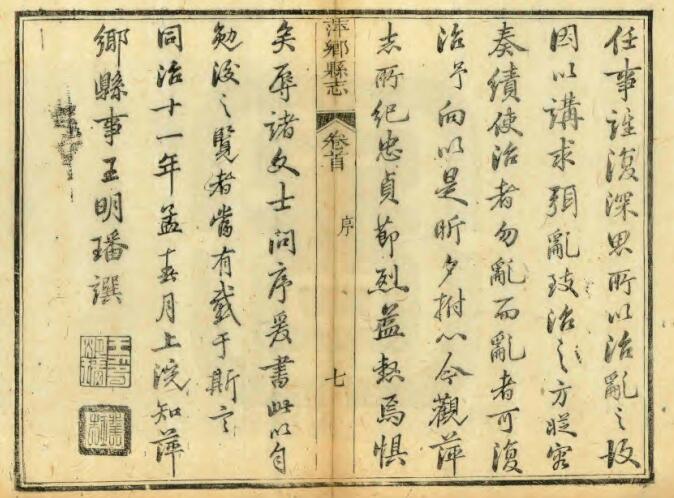 任事誰復深思所以治亂之故
因以講求弭亂致治之方從容
奏績使治者勿亂而亂者可復
治予向以是昕夕拊心今觀萍
志所紀忠貞節烈益焉惧
萍鄉縣志
卷首
序
七
矣辱諸文士問序爰書此以自
勉後之覽者當有感于斯言
同治十一年孟春月上浣知萍
鄉縣事王明璠譔